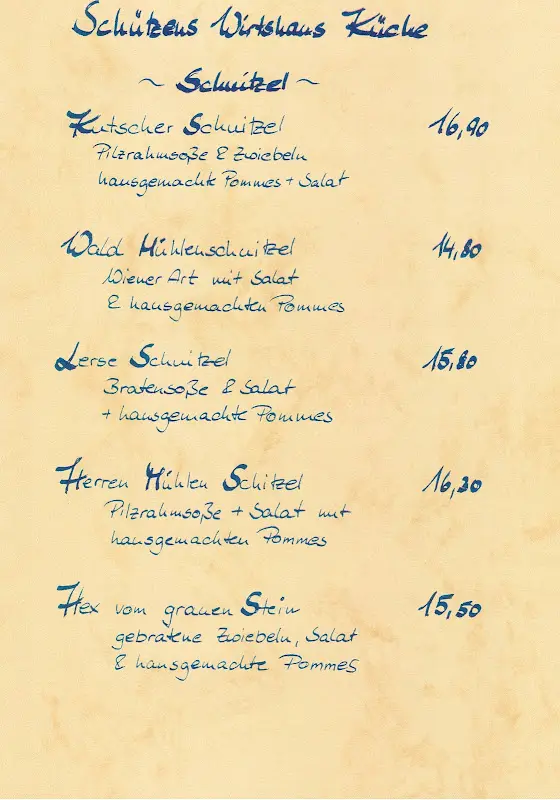 Schützens Wirtshaus Küche
~ Schnitzel ~
Kutscher Schnitzel 16,90
Pilzrahmsoße & Zwiebeln
hausgemachte Pommes + Salat
Wald Mühlenschnitzel 14,80
Wiener Art mit Salat
& hausgemachten Pommes
Lerse Schnitzel 15,80
Bratensoße & Salat
+ hausgemachte Pommes
Herren Mühlen Schitzel 16,30
Pilzrahmsoße + Salat mit
hausgemachten Pommes
Hex vom grauen Stein 15,50
gebratene Zwiebeln, Salat
& hausgemachte Pommes